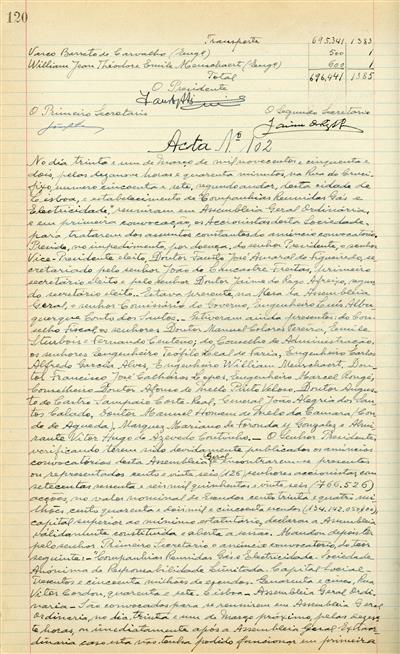 120
Transporte 695.341 1383
Vasco Barreto de Carvalho (Engº) 500 1
William Jean Théodore Emile Meuschaert (Engº) 600 1
Total 696,441 1385
O Presidente
O Primeiro Secretario O Segundo Secretário
Acta Nº 102
No dia trinta e um de Março de mil novecentos e cinquenta e
dois, pelas dezanove horas e quarenta minutos, na Rua do Cruci-
fixo, numero cincoenta e sete, segundo andar, desta cidade de
Lisboa, e estabelecimento de Companhias Reunidas Gás e
Electricidade, reuniram em Assembleia Geral Ordinária,
e em primeira convocação, os Accionistas desta Sociedade
para tratarem dos assuntos constantes do anúncio convocatório.
Presidiu, no impedimento, por doença, do senhor Presidente, o senhor
Vice-Presidente eleito, Doutor Fausto José Amaral de Figueiredo, se-
cretariado pelo senhor João de Lencastre Freitas, primeiro
secretário eleito e pelo senhor Doutor Jaime do Rego Afreixo, segun-
do secretário eleito. Estava presente, na Mesa da Assembleia
Geral, o senhor Comissário do Governo, Engenheiro Luís Albu-
querque Couto dos Santos. Estiveram ainda presentes: do Con-
selho Fiscal, os senhores Doutor Manuel Colares Pereira, Emile
e Fernando Centeno; do Conselho de Administração,
os senhores Engenheiro Teófilo Leal de Faria, Engenheiro Carlos
Alfredo Garcia Alves, Engenheiro William Meuschaert, Dou-
tor Francisco José Calheiros Lopes, Engenheiro Marcel Rougé,
Conselheiro Doutor Afonso de Mello Pinto Veloso, Doutor Augus-
to de Castro Sampaio Corte-Real, General João Alegria dos San-
tos Calado, Doutor Manuel Homem de Melo da Camara (Con-
de de Agueda), Marquez Mariano de Foronda y Gonzalez e Almi-
rante Vitor Hugo de Azevedo Coutinho. — O Senhor Presidente,
verificando terem sido devidamente publicados os anuncios
convocatórios desta Assembleia Geral e encontrarem-se presentes
ou representados cento e vinte seis (126) senhores accionistas, com
setecentas sessenta e seis mil quinhentas e vinte seis (766.526)
acções, no valor nominal de Escudos cento trinta e quatro mi-
lhões, cento quarenta e dois mil e cincoenta escudos (134.142.050$00)
capital superior ao mínimo estatutário, declarou a Assembleia
válidamente constituida e aberta a sessão. Mandou depois ler
pelo senhor Primeiro Secretario o anúncio convocatório, do teor
seguinte: - Companhias Reunidas Gás e Electricidade - Sociedade
Anónima de Responsabilidade Limitada. Capital Social -
Trezentos e cincoenta milhões de escudos. Quarenta e cinco, Rua
Vitor Cordon, quarenta e sete. Lisboa - Assembleia Geral Ordi-
nária - São convocados para se reunirem em Assembleia Geral
Ordinária, no dia trinta e um de Março próximo, pelas dezas-
te horas, ou imediatamente após a Assembleia Geral Extraor-
dinária caso esta não tenha podido funcionar em primeira